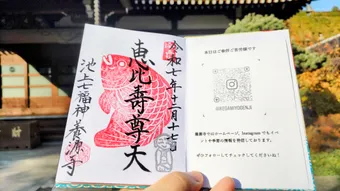 令和七年十二月十七日
恵比寿尊天
池上七福神 養源寺
本日はご参拝ご苦労様です
養源寺ではホームページ、Instagram でもイベ
ントや季節の情報を発信しております。
ぜひフォローしてチェックしてくださいね!